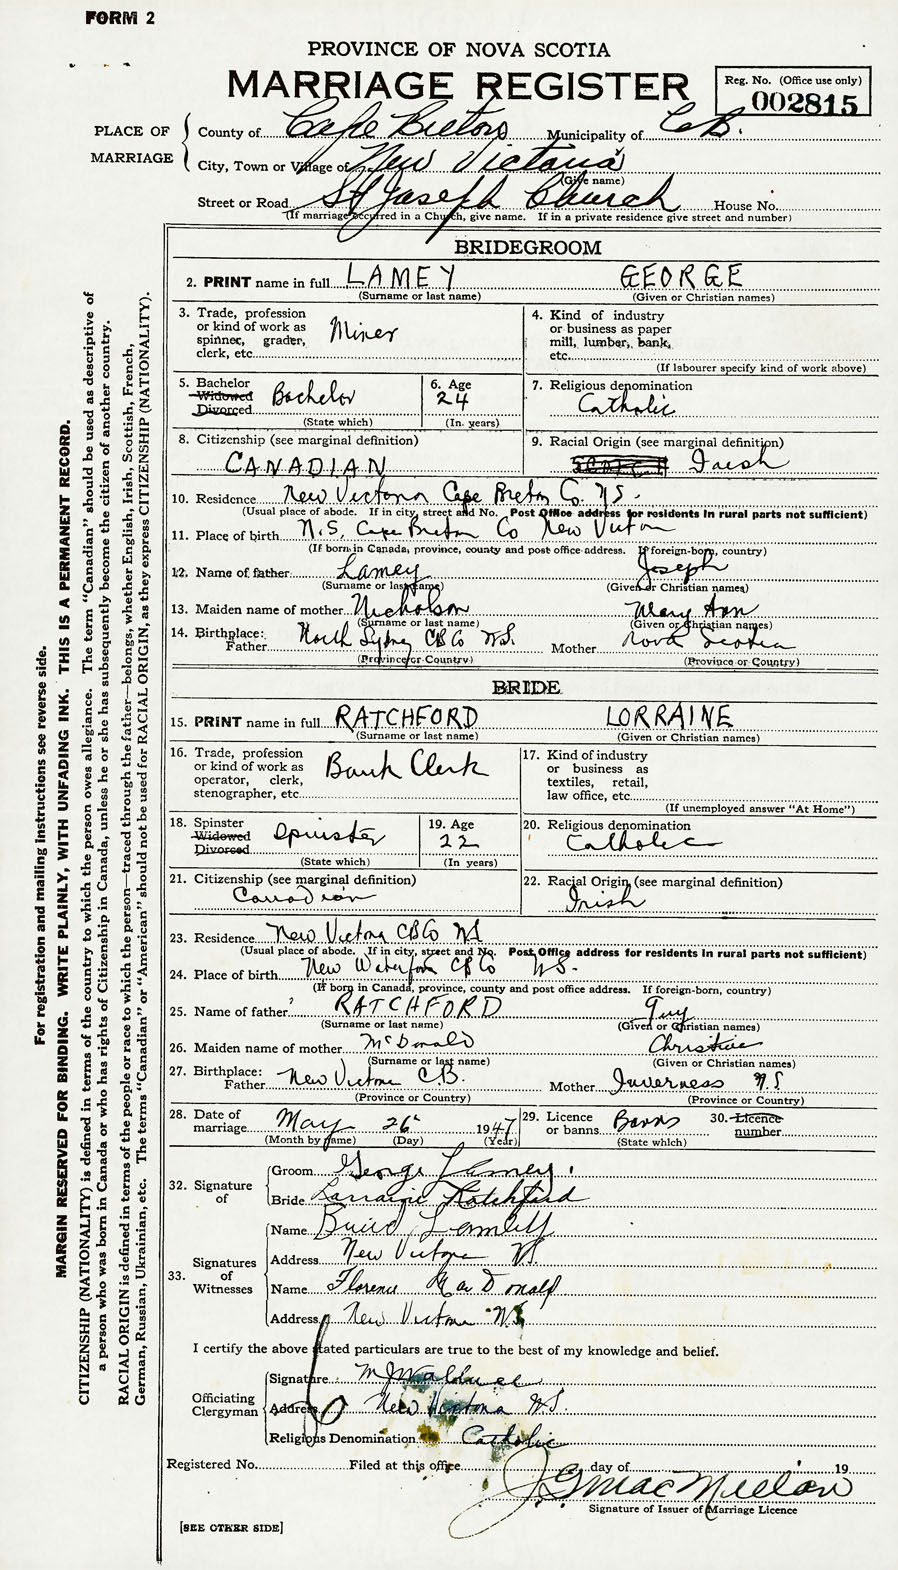 FORM 2
PROVINCE OF NOVA SCOTIA
MARRIAGE REGISTER
Reg. No. (Office use only)
002815
PLACE OF MARRIAGE
County of Cape Breton Municipality of C.B.
City, Town or Village of New Victoria
(Give name)
Street or Road St Joseph Church House No.
(If marriage occurred in a Church, give name. If in a private residence give street and number)
BRIDEGROOM
2. PRINT name in full LAMEY GEORGE
(Surname or last name) (Given or Christian names)
3. Trade, profession or kind of work as spinner, grader, clerk, etc. Miner
4. Kind of industry or business as paper mill, lumber, bank, etc.
(If labourer specify kind of work above)
5. Bachelor Widowed Divorced Bachelor
(State which)
6. Age 24
(In years)
7. Religious denomination
Catholic
8. Citizenship (see marginal definition)
CANADIAN
9. Racial Origin (see marginal definition)
Irish
10. Residence New Victoria Cape Breton Co. N.S.
(Usual place of abode. If in city, street and No. Post Office address for residents in rural parts not sufficient)
11. Place of birth N.S. Cape Breton Co New Victoria
(If born in Canada, province, county and post office address. If foreign-born, country)
12. Name of father Lamey Joseph
(Surname or last name) (Given or Christian names)
13. Maiden name of mother Nicholson Mary Ann
(Surname or last name) (Given or Christian names)
14. Birthplace: Father North Sydney CB Co N.S. Mother Nova Scotia
(Province or Country) (Province or Country)
BRIDE
15. PRINT name in full RATCHFORD LORRAINE
(Surname or last name) (Given or Christian names)
16. Trade, profession or kind of work as operator, clerk, stenographer, etc. Bank Clerk
17. Kind of industry or business as textiles, retail, law office, etc.
(If unemployed answer "At Home")
18. Spinster Widowed Divorced Spinster
(State which)
19. Age 22
(In years)
20. Religious denomination
Catholic
21. Citizenship (see marginal definition)
Canadian
22. Racial Origin (see marginal definition)
Irish
23. Residence New Victoria CB Co NS
(Usual place of abode. If in city, street and No. Post Office address for residents in rural parts not sufficient)
24. Place of birth New Waterford CB Co N.S.
(If born in Canada, province, county and post office address. If foreign-born, country)
25. Name of father RATCHFORD Guy
(Surname or last name) (Given or Christian names)
26. Maiden name of mother McDonald Christine
(Surname or last name) (Given or Christian names)
27. Birthplace: Father New Victoria C.B. Mother Inverness N.S
(Province or Country) (Province or Country)
28. Date of marriage May 26 1947
(Month by name) (Day) (Year)
29. Licence or banns Banns
(State which)
30. Licence number
32. Signature of
Groom George Lamey
Bride Lorraine Ratchford
33. Signatures of Witnesses
Name
Address New Victoria N.S.
Name Florence MacDonald
Address New Victoria N.S.
I certify the above stated particulars are true to the best of my knowledge and belief.
Officiating Clergyman
Signature
Address New Victoria N.S.
Religious Denomination Catholic
Registered No. Filed at this office day of 19
J.G. MacMillan
Signature of Issuer of Marriage Licence
[SEE OTHER SIDE]
For registration and mailing instructions see reverse side.
MARGIN RESERVED FOR BINDING. WRITE PLAINLY, WITH UNFADING INK. THIS IS A PERMANENT RECORD.
CITIZENSHIP (NATIONALITY) is defined in terms of the country to which the person owes allegiance. The term "Canadian" should be used as descriptive of
a person who was born in Canada or who has rights of Citizenship in Canada, unless he or she has subsequently become the citizen of another country.
RACIAL ORIGIN is defined in terms of the people or race to which the person—traced through the father—belongs, whether English, Irish, Scottish, French,
German, Russian, Ukrainian, etc. The terms "Canadian" or "American" should not be used for RACIAL ORIGIN, as they express CITIZENSHIP (NATIONALITY).